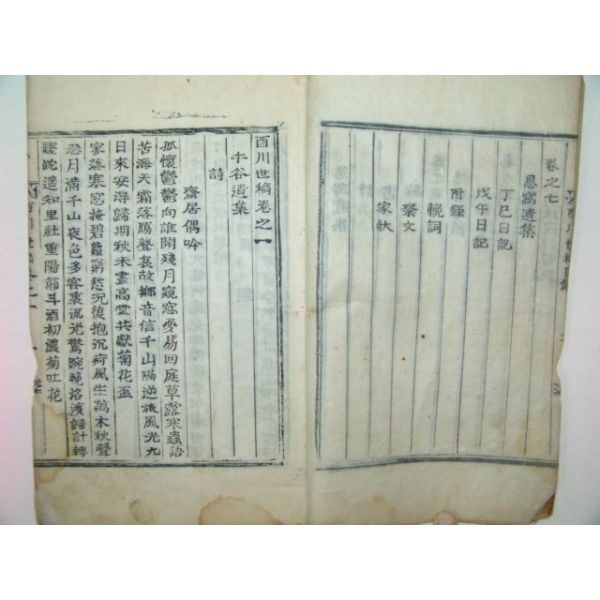 卷之七
思窩遺集
丁巳日記
戊午日記
附錄
輓詞
祭文
家狀
百川世稿卷之一
牛谷遺集
詩
齋居偶吟
孤懷鬱鬱向誰開殘月窺窓夢易回庭草露寒蟲語
苦海天霜落鴈聲哀故鄉音信千山隔逆旅風光九
日來安得歸期秋未盡高堂共獻菊花盃
寥落寒窓掩碧蘿窮愁況復抱沉疴風生萬木秋聲
月滿千山夜色多客裏流光驚晼晚洛濱歸計轉
蹉跎遥知里社重陽節斗酒初濃菊吐花